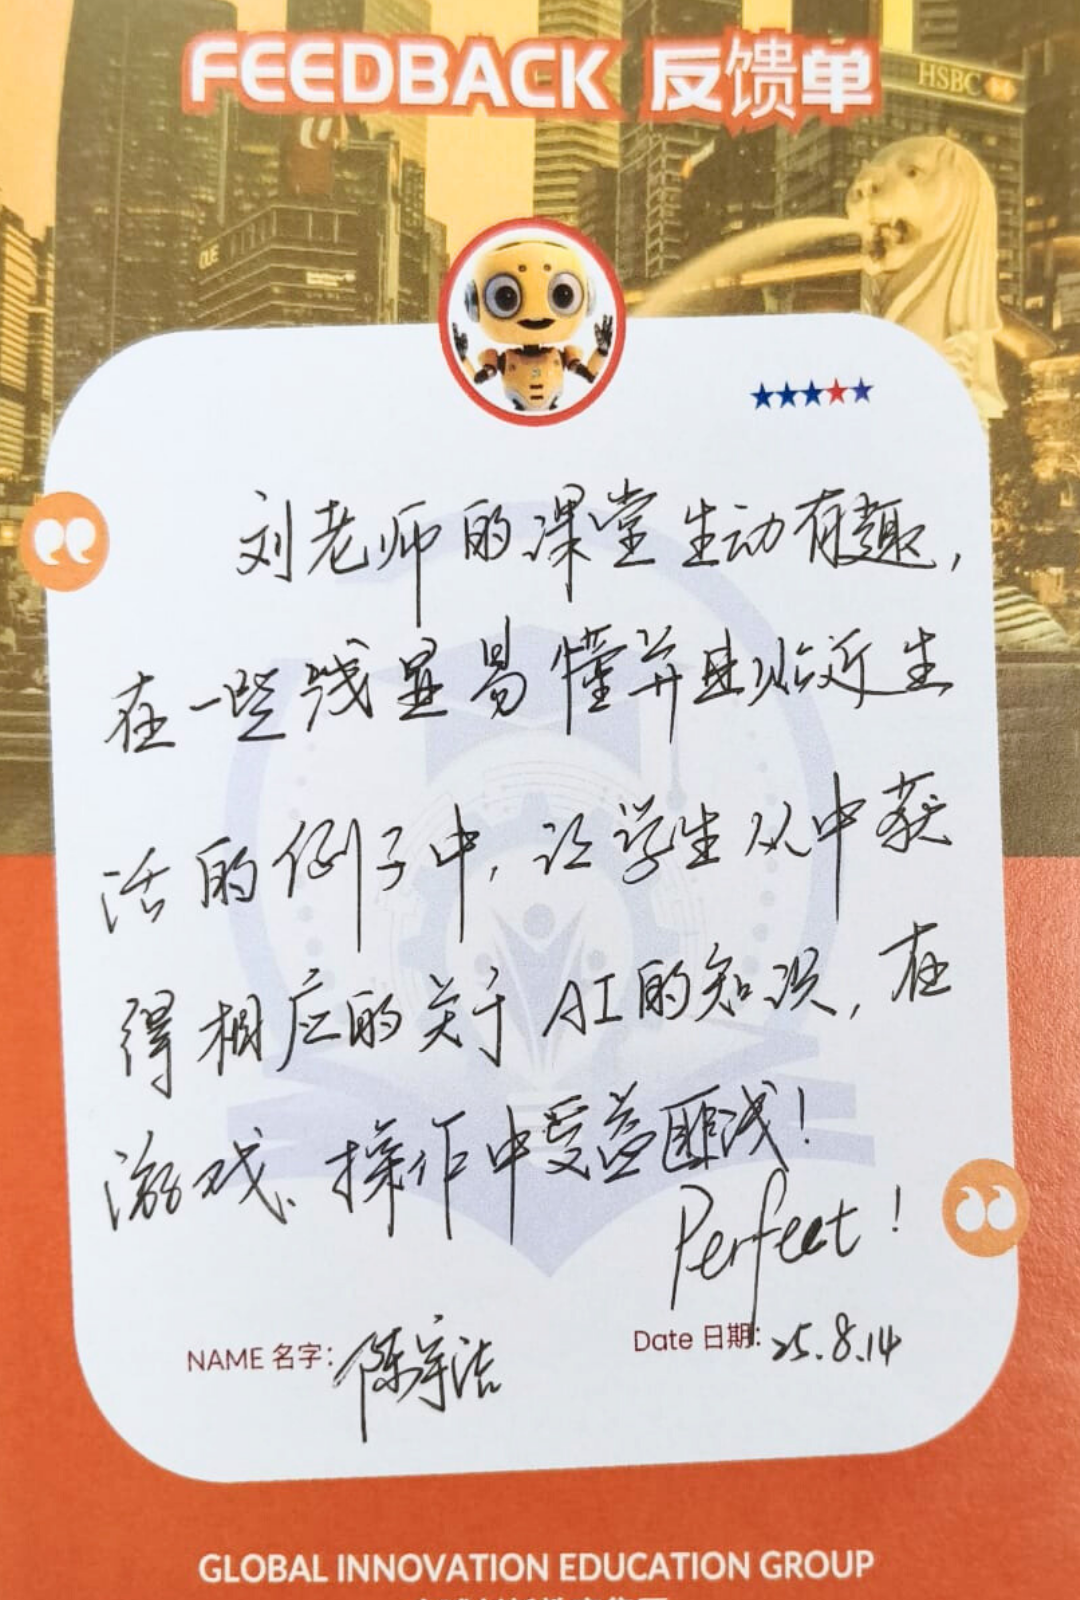 FEEDBACK 反馈单
HSBC
OUE
刘老师的课堂生动有趣,
在一些浅显易懂并且贴近生
活的例子中,让学生从中获
得相应的关于AI的知识,在
游戏、操作中受益匪浅!
Perfect!
NAME 名字: 陈宇洁
Date 日期: 25.8.14
GLOBAL INNOVATION EDUCATION GROUP